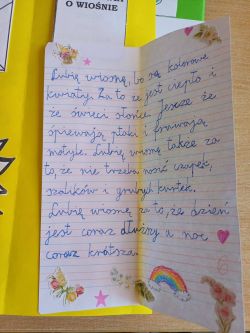 O WIOŚNIE
Lubię wiosnę, bo są kolorowe
kwiaty. Za to że jest ciepło i
że świeci słońce. Jeszcze że
śpiewają ptaki i fruwają
motyle. Lubię wiosnę także za
to, że nie trzeba nosić czapek,
szalików i grubych kurtek.
Lubię wiosnę za to, że dzień
jest coraz dłuższy a noc
coraz krótsza.
6